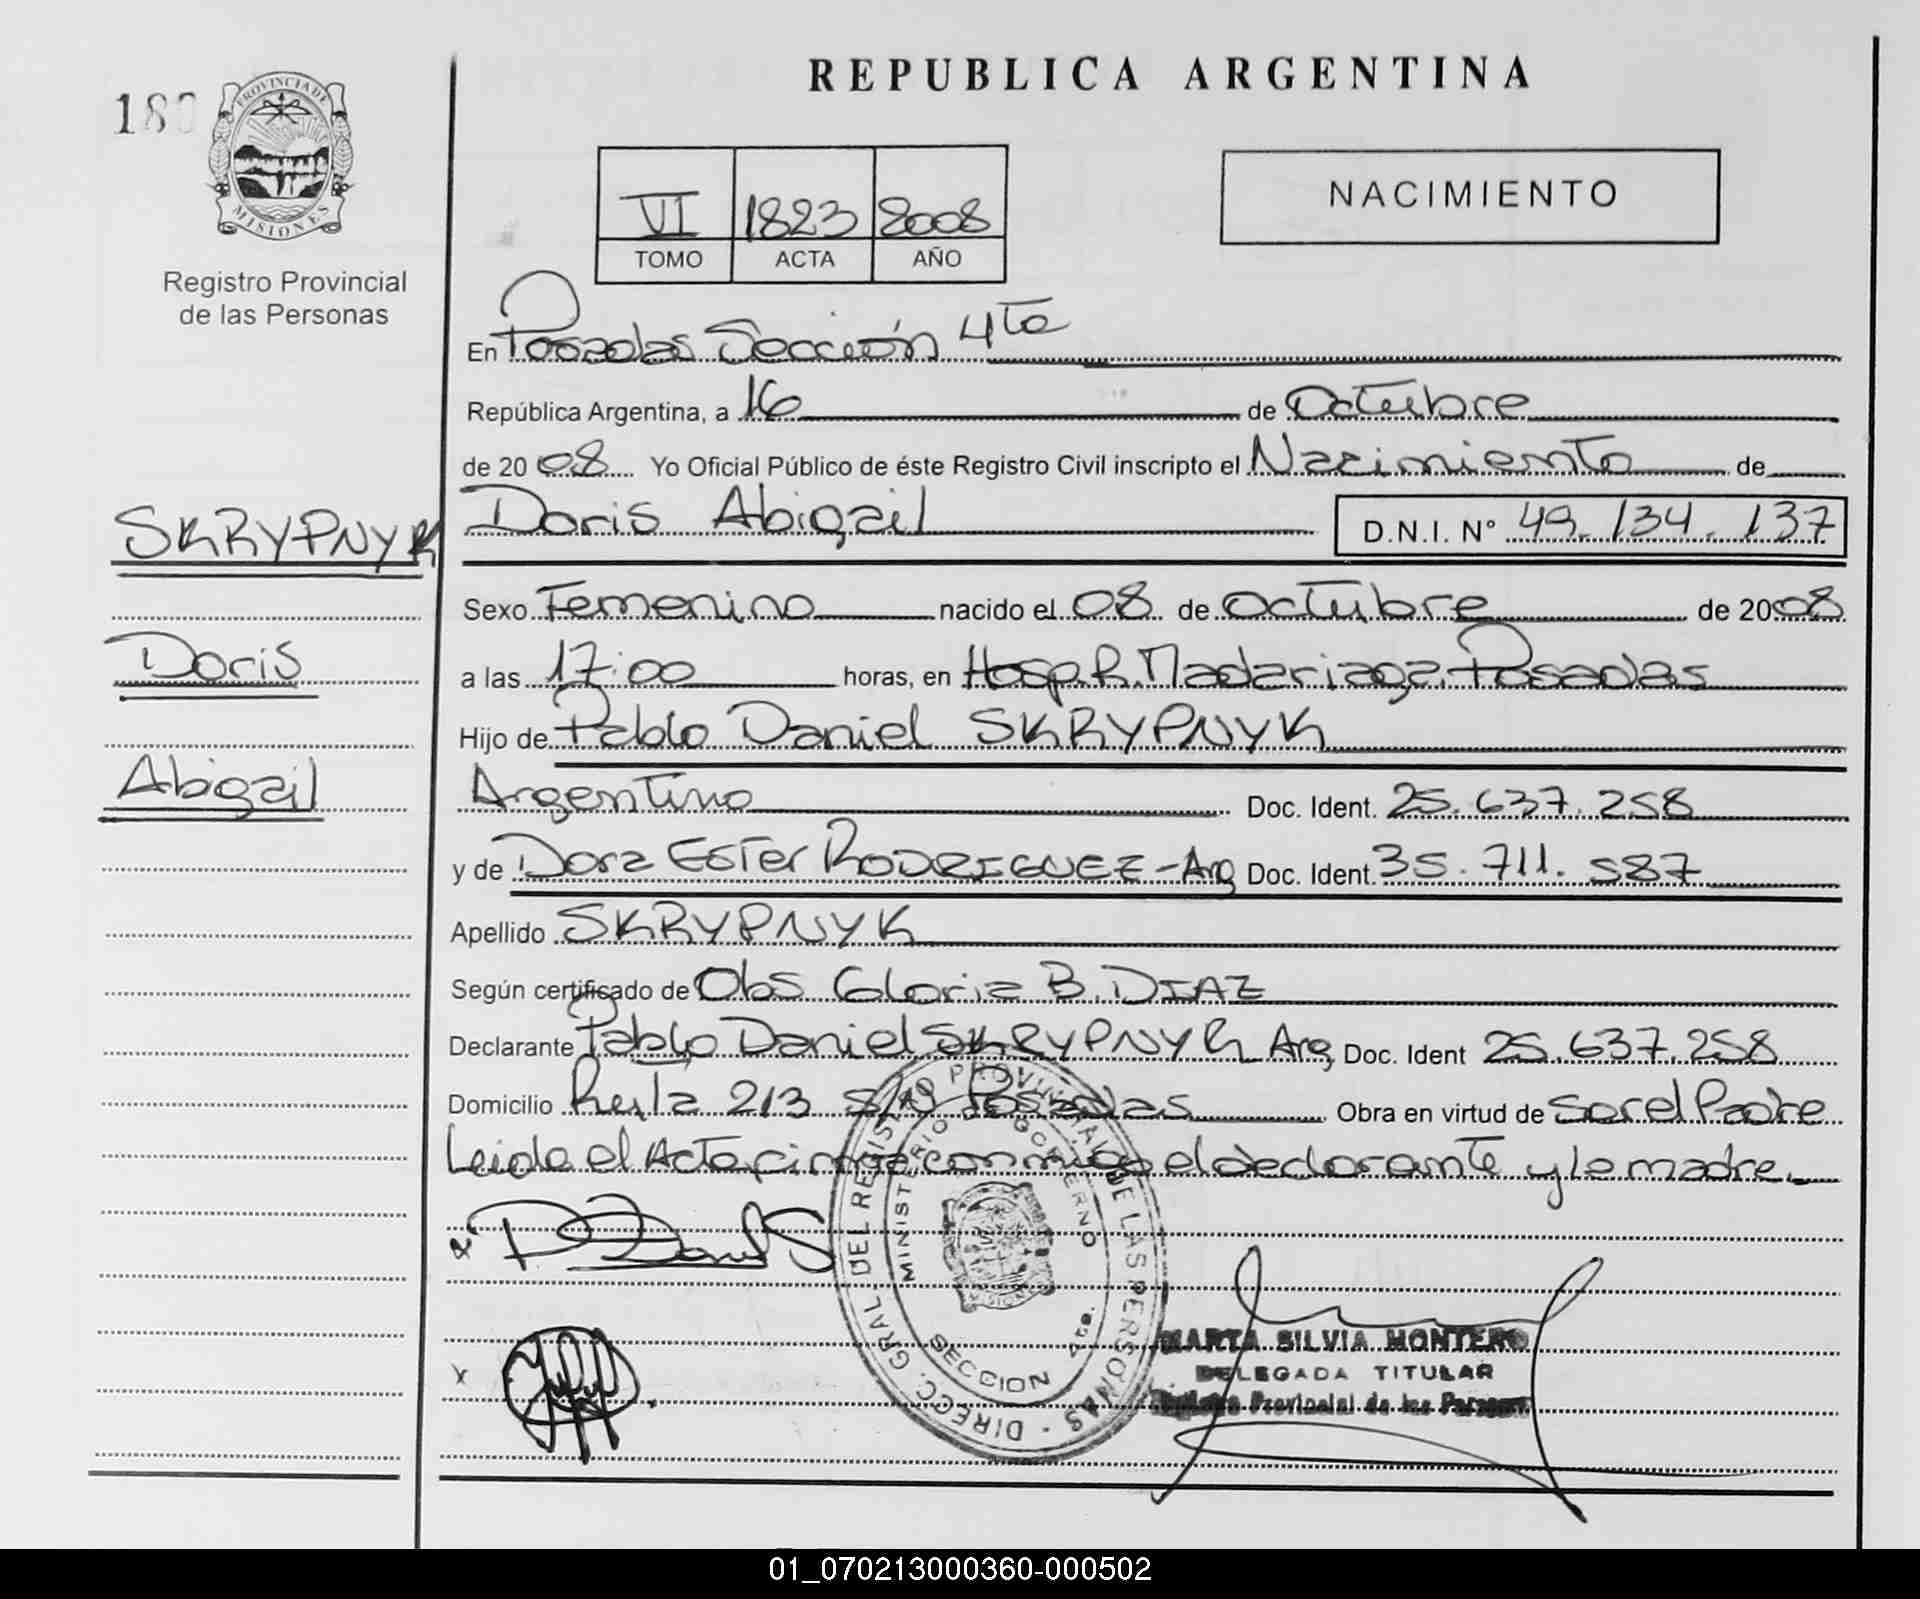 REPUBLICA ARGENTINA
18
PROVINCIA DE
MISIONES
Registro Provincial
de las Personas
VI 1823 2008
TOMO ACTA AÑO
NACIMIENTO
En Posadas Sección 4ta
República Argentina, a 16 de Octubre
de 2008 Yo Oficial Público de éste Registro Civil inscripto el Nacimiento de
SKRYPNYK
Doris
Abigail
Doris Abigail D.N.I. N° 49.134.137
Sexo Femenino nacido el 08 de Octubre de 2008
a las 17:00 horas, en Hosp. R. Madariaga. Posadas
Hijo de Pablo Daniel SKRYPNYK
Argentino Doc. Ident. 25.637.258
y de Dora Ester RODRIGUEZ - Arg Doc. Ident. 35.711.587
Apellido SKRYPNYK
Según certificado de Obs Gloria B. DIAZ
Declarante Pablo Daniel SKRYPNYK Arg Doc. Ident 25.637.258
Domicilio 213 Posadas Obra en virtud de Padre
Leida el Acta, firma conmigo el declarante y la madre.
DIRECC. GRAL. DEL REGISTRO PROVINCIAL DE LAS PERSONAS
MINISTERIO DE GOBIERNO
SECCION 4ta.
MARTA SILVIA MONTERO
DELEGADA TITULAR
Registro Provincial de las Personas
01_070213000360-000502